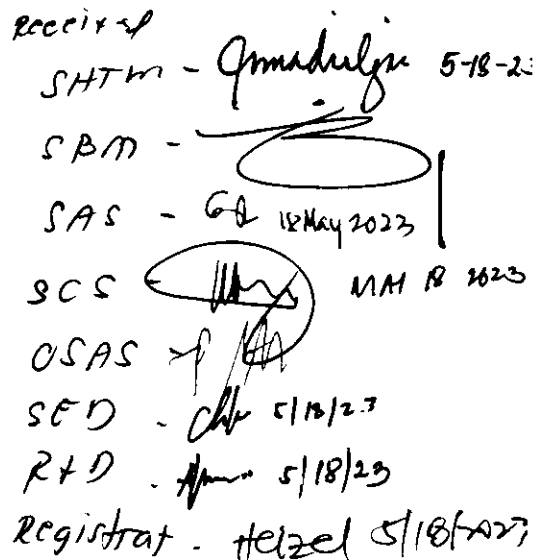 Received
SHTM - 5-18-23
SBM -
SAS - 18 May 2023
SCS - MAY 18 2023
OSAS -
SED - 5/18/23
R+D - 5/18/23
Registrar - Helzel 5/18/2023